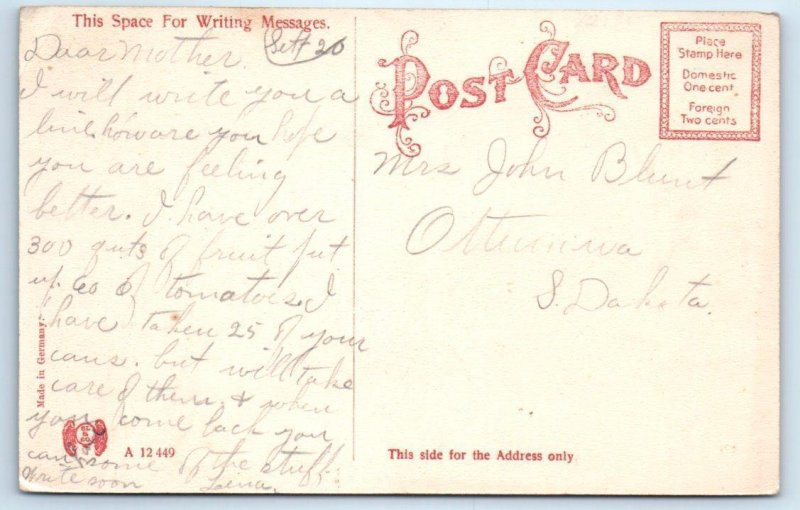 This Space For Writing Messages.
Sept 20
Dear Mother.
I will write you a
line. how are you hope
you are feeling
better. I have over
300 quts of fruit put
up. 60 of tomatoes. I
have taken 25 of your
cans. but will take
care of them. & when
you come back you
can some of the stuff.
Write soon Lena.
Made in Germany.
A 12 449
POST CARD
Place
Stamp Here
Domestic
One cent
Foreign
Two cents
Mrs John Blunt
Ottumwa
S. Dakota.
This side for the Address only.